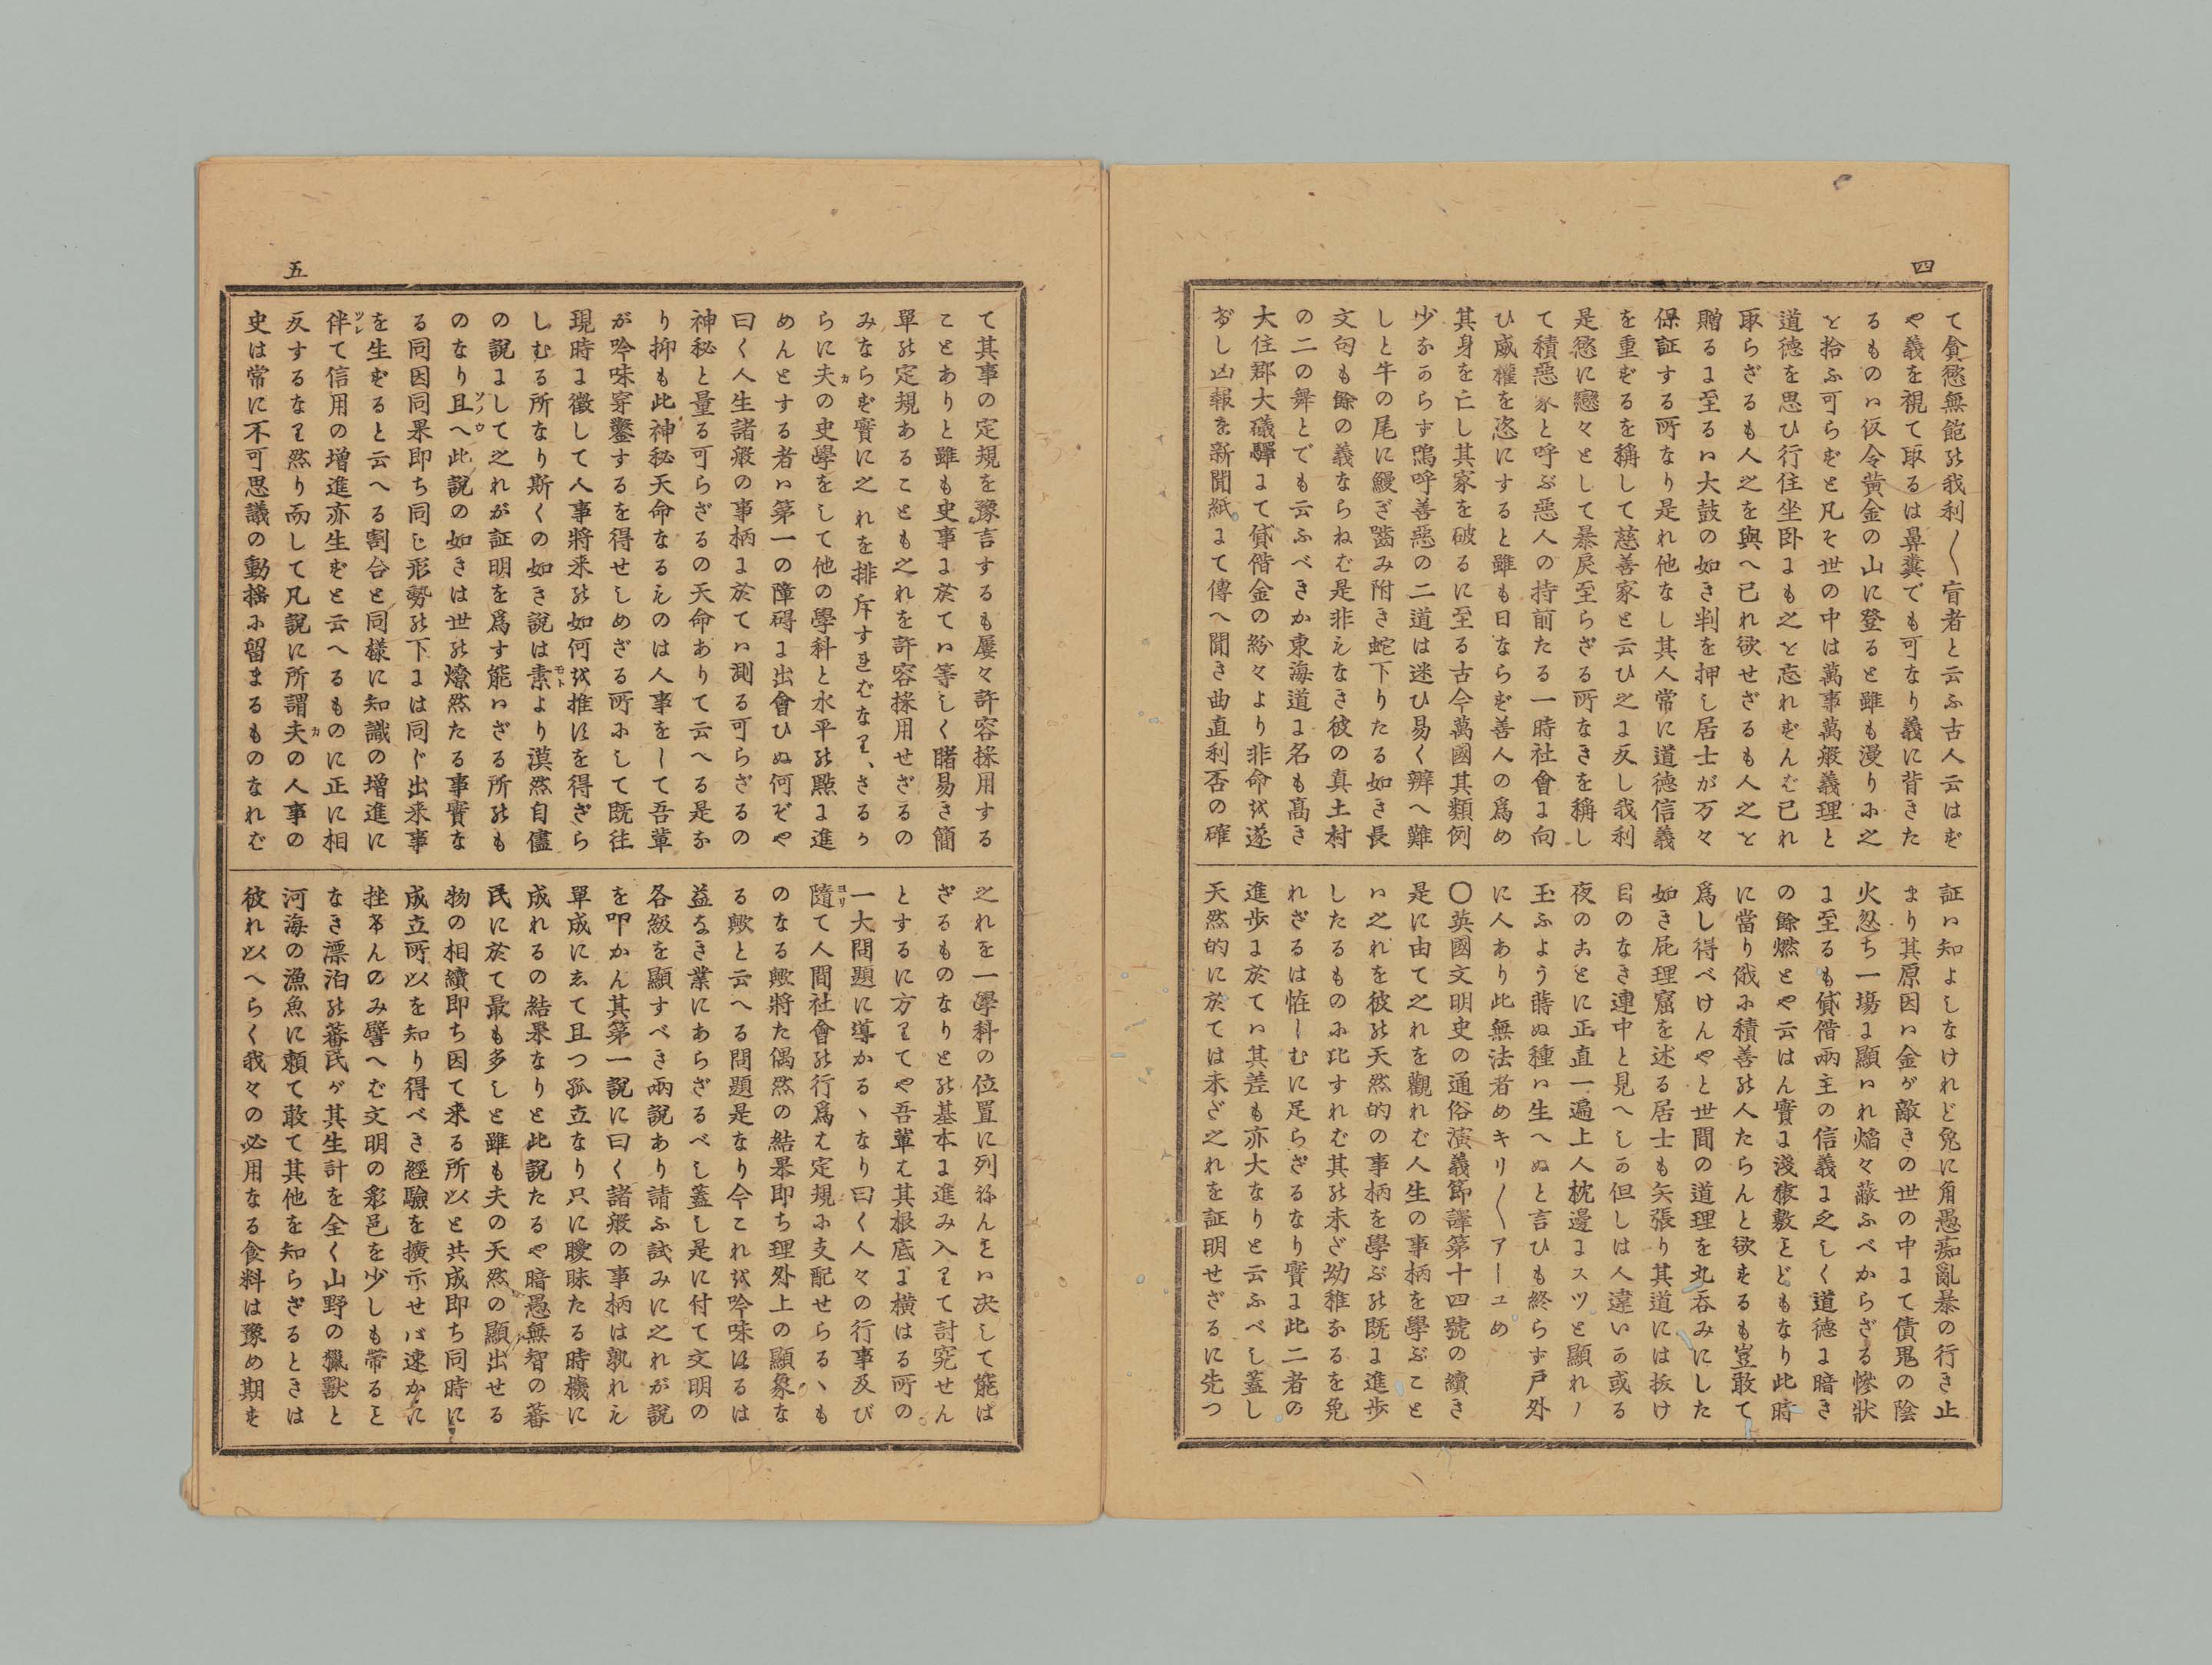 四
て貪慾無飽の我利〱盲者と云ふ古人云はず
や義を視て取るは鼻糞でも可なり義に背きた
るものハ仮令黄金の山に登ると雖も漫りに之
を拾ふ可らずと凡そ世の中は萬事萬般義理と
道德を思ひ行住坐臥にも之を忘れずんば已れ
取らざるも人之を與へ已れ欲せざるも人之を
贈るに至るハ大鼓の如き判を押し居士が万々
保証する所なり是れ他なし其人常に道德信義
を重ずるを稱して慈善家と云ひ之に反し我利
是慾に戀々として暴戻至らざる所なきを稱し
て積惡家と呼ぶ惡人の持前たる一時社會に向
ひ威權を恣にすると雖も日ならず善人の爲め
其身を亡し其家を破るに至る古今萬國其類例
少なからず嗚呼善惡の二道は迷ひ易く辨へ難
しと牛の尾に鰻ぎ噛み附き蛇下りたる如き長
文句も餘の義ならねば是非もなき彼の真土村
の二の舞とでも云ふべきか東海道に名も高き
大住郡大磯驛にて貸借金の紛々より非命を遂
げし凶報を新聞紙にて傳へ聞き曲直利否の確
証ハ知よしなけれど兔に角愚痴亂暴の行き止
まり其原因ハ金が敵きの世の中にて債鬼の陰
火忽ち一塲に顯ハれ焔々蔽ふべからざる慘狀
に至るも貸借兩主の信義に乏しく道德に暗き
の餘燃とや云はん實に淺猿敷ことどもなり此時
に當り俄に積善の人たらんと欲するも豈敢て
爲し得べけんやと世間の道理を丸呑みにした
如き屁理窟を述る居士も矢張り其道には抜け
目のなき連中と見へしか但しは人違いか或る
夜のことに正直一遍上人枕邊にスツと顯れノ
玉ふよう蒔ぬ種ハ生へぬと言ひも終らず戸外
に人あり此無法者めキリ〱アーユめ
〇英國文明史の通俗演義節譯第十四號の續き
是に由て之れを觀れば人生の事柄を學ぶこと
ハ之れを彼の天然的の事柄を學ぶの既に進歩
したるものに比すれば其の未だ幼稚なるを免
れざるは恠しむに足らざるなり實に此二者の
進歩に於てハ其差も亦大なりと云ふべし蓋し
天然的に於ては未だ之れを証明せざるに先つ
五
て其事の定規を豫言するも屡々許容採用する
ことありと雖も史事に於てハ等しく賭易き簡
單の定規あることも之れを許容採用せざるの
みならず實に之れを排斥すればなり、さるか
らに夫の史學をして他の學科と水平の點に進
カ
めんとする者ハ第一の障碍に出會ひぬ何ぞや
曰く人生諸般の事柄に於てハ測る可らざるの
神秘と量る可らざるの天命ありて云へる是な
り抑も此神秘天命なるものは人事をして吾輩
が吟味穿鑿するを得せしめざる所にして既往
現時に徵して人事將来の如何を推すを得ざら
しむる所なり斯くの如き説は素より漠然自儘
モト
の説にして之れが証明を爲す能ハざる所のも
のなり且へ此説の如きは世の燎然たる事實な
ソノウ
る同因同果即ち同じ形勢の下には同じ出来事
を生ずると云へる割合と同樣に知識の増進に
伴て信用の増進亦生ずと云へるものに正に相
ツレ
反するなり然り而して凡説に所謂夫の人事の
カ
史は常に不可思議の動揺に留まるものなれば
之れを一學科の位置に列ねんことハ决して能は
ざるものなりとの基本に進み入りて討究せん
とするに方りてや吾輩は其根底に橫はる所の
一大問題に導かるゝなり曰く人々の行事及び
隨て人間社會の行爲は定規に支配せらるゝも
ヨリ
のなる歟將た偶然の結果即ち理外上の顯象な
る歟と云へる問題是なり今これを吟味するは
益なき業にあらざるべし蓋し是に付て文明の
各級を顯すべき兩説あり請ふ試みに之れが説
を叩かん其第一説に曰く諸般の事柄は孰れも
單成にして且つ孤立なり只に曖昧たる時機に
成れるの結果なりと此説たるや暗愚無智の蕃
民に於て最も多しと雖も夫の天然の顯出せる
物の相續即ち因て来る所以と共成即ち同時に
成立所以を知り得べき經驗を擴示せバ速かに
挫けんのみ譬へば文明の彩色を少しも帶ること
なき漂泊の蕃民が其生計を全く山野の獵獸と
河海の漁魚に賴て敢て其他を知らざるときは
彼れ以へらく我々の必用なる食料は豫め期す